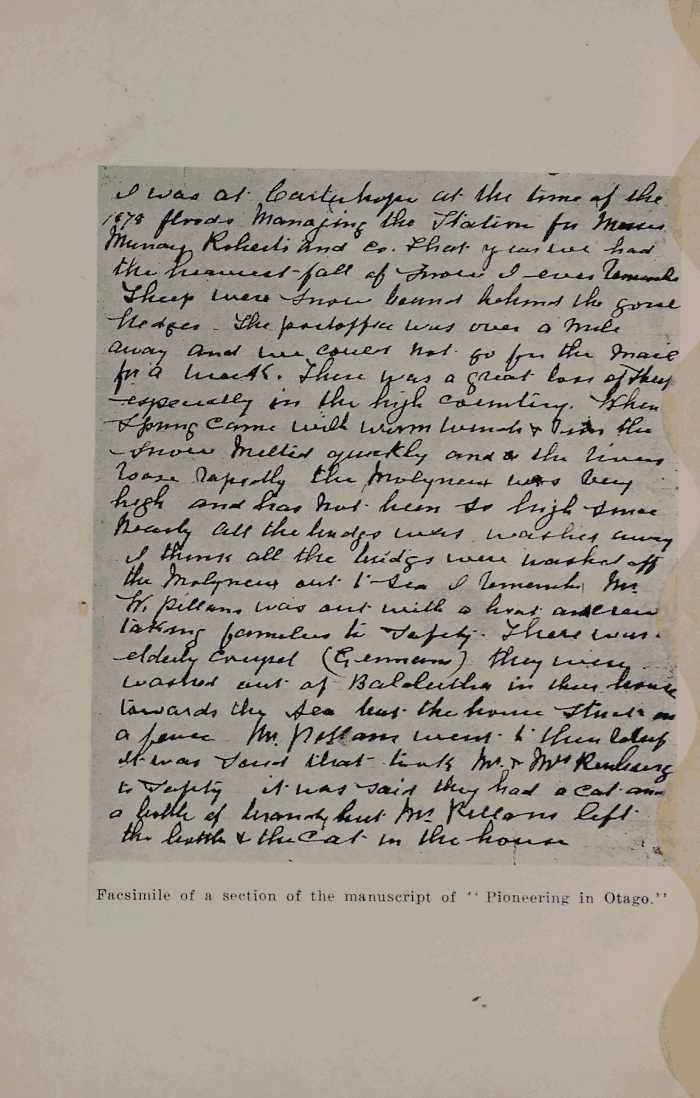 I was at Carterhope at the time of the
1878 floods Managing the Station for Messrs
Murray Roberts and Co. That year we had
the heaviest fall of snow I ever remember
Sheep were snow bound behind the gorse
hedges. The postoffice was over a mile
away and we could not go for the mail
for a week. There was a great loss of sheep
especially in the high country. When
Spring came with warm winds & rain the
snow melted quickly and the rivers
rose rapidly the Molyneux was very
high and has not been so high since
nearly all the bridges was washed away
I think all the bridges were washed off
the Molyneux out to sea I remember Mr
W. Pillans was out with a boat and crew
taking families to safety. There was
elderly coupel (Germans) they were
washed out of Balclutha in their house
towards the sea but the house stuck on
a fence Mr. Pillans went to their help
it was said that took Mr. & Mrs
to safety it was said they had a cat and
a bottle of brandy but Mr Pillans left
the bottle & the cat in the house
Facsimile of a section of the manuscript of "Pioneering in Otago."